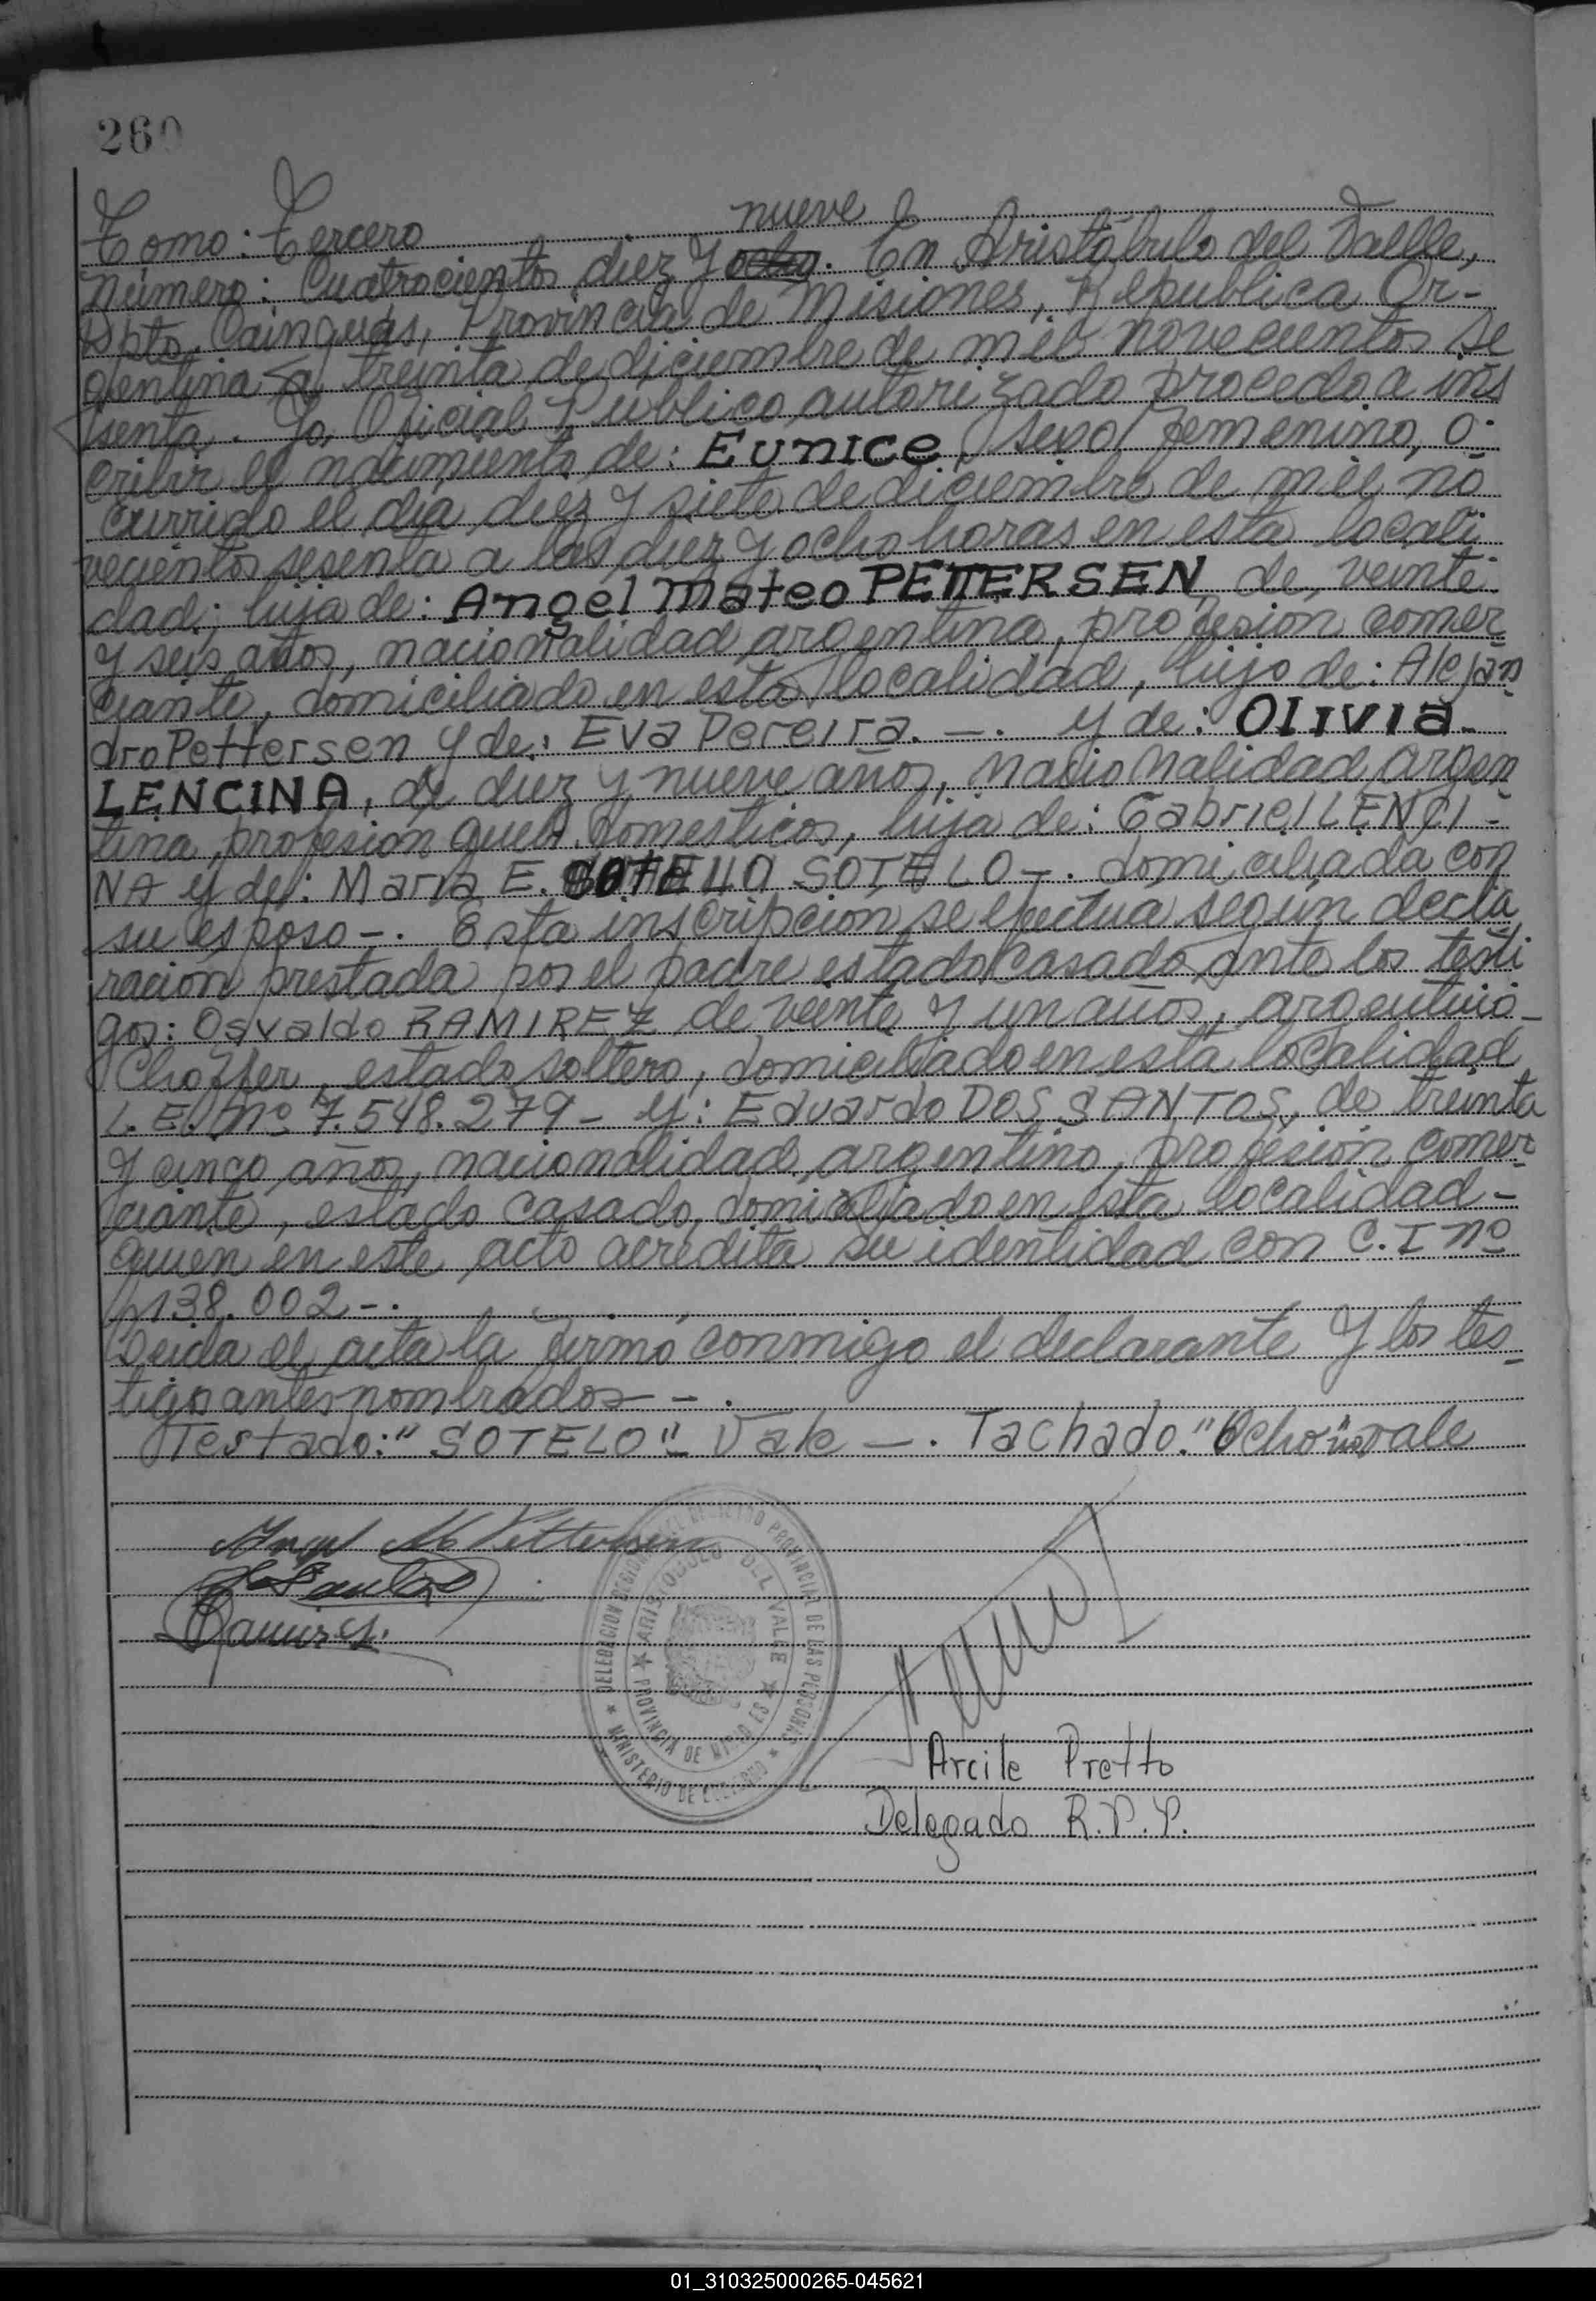 260
Tomo: Tercero
nueve
Número: Cuatrocientos diez y ocho. En Aristóbulo del Vallle,
Dpto. Cainguás, Provincia de Misiones, Republica Ar-
gentina a treinta de diciembre de mil novecientos se
senta. Yo, Oficial Publico autorizado procedo a ins
cribir el nacimiento de: Eunice, sexo femenino, o-
currido el día diez y siete de diciembre de mil no
vecientos sesenta a las diez y ocho horas en esta locali
dad; hija de: Angel Mateo PETTERSEN, de veinte
y seis años, nacionalidad argentina, profesion comer
ciante, domiciliado en esta localidad, hijo de: Alejan
dro Pettersen y de: Eva Pereira. —. y de: OLIVIA
LENCINA, de diez y nueve años, nacionalidad argen
tina, profesion queh. domesticos, hija de: Gabriel LENCI-
NA y de: Maria E. SOTELO —. domiciliada con
su esposo —. Esta inscripcion se efectua según decla
racion prestada por el padre estado casado ante los testi
gos: Osvaldo RAMIREZ de veinte y un años, argentino-
Choffer, estado soltero, domiciliado en esta localidad
L.E. nº 7.548.279 - y: Eduardo DOS SANTOS, de treinta
y cinco años, nacionalidad argentino, profesión comer
ciante, estado casado, domiciliado en esta localidad -
quien en este acto acredita su identidad con C.I nº
138.002 -.
Leida el acta la firmo conmigo el declarante y los tes-
tigo antes nombrados — .
Testado: "SOTELO" Vale —. Tachado. "Ocho" no vale
Angel M. Pettersen
Ramirez.
DELEGACION REGIONAL DEL REGISTRO PROVINCIAL DE LAS PERSONAS
★ MINISTERIO DE GOBIERNO ★
★ ARISTOBULO DEL VALLE ★
PROVINCIA DE MISIONES
Arcile Pretto
Delegado R.P.P.
01_310325000265-045621